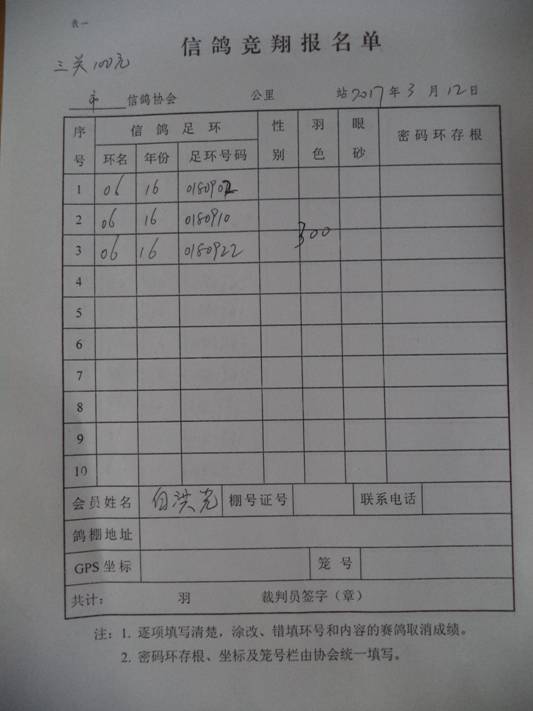 表一
信鸽竞翔报名单
三关100元
市 信鸽协会 公里 站2017年3月12日
序号 信鸽足环 性别 羽色 眼砂 密码环存根
环名 年份 足环号码
1 06 16 0180902
2 06 16 0180910
300
3 06 16 0180922
4
5
6
7
8
9
10
会员姓名 白洪光 棚号证号 联系电话
鸽棚地址
GPS坐标 笼号
共计: 羽 裁判员签字(章)
注:1. 逐项填写清楚,涂改、错填环号和内容的赛鸽取消成绩。
2. 密码环存根、坐标及笼号栏由协会统一填写。